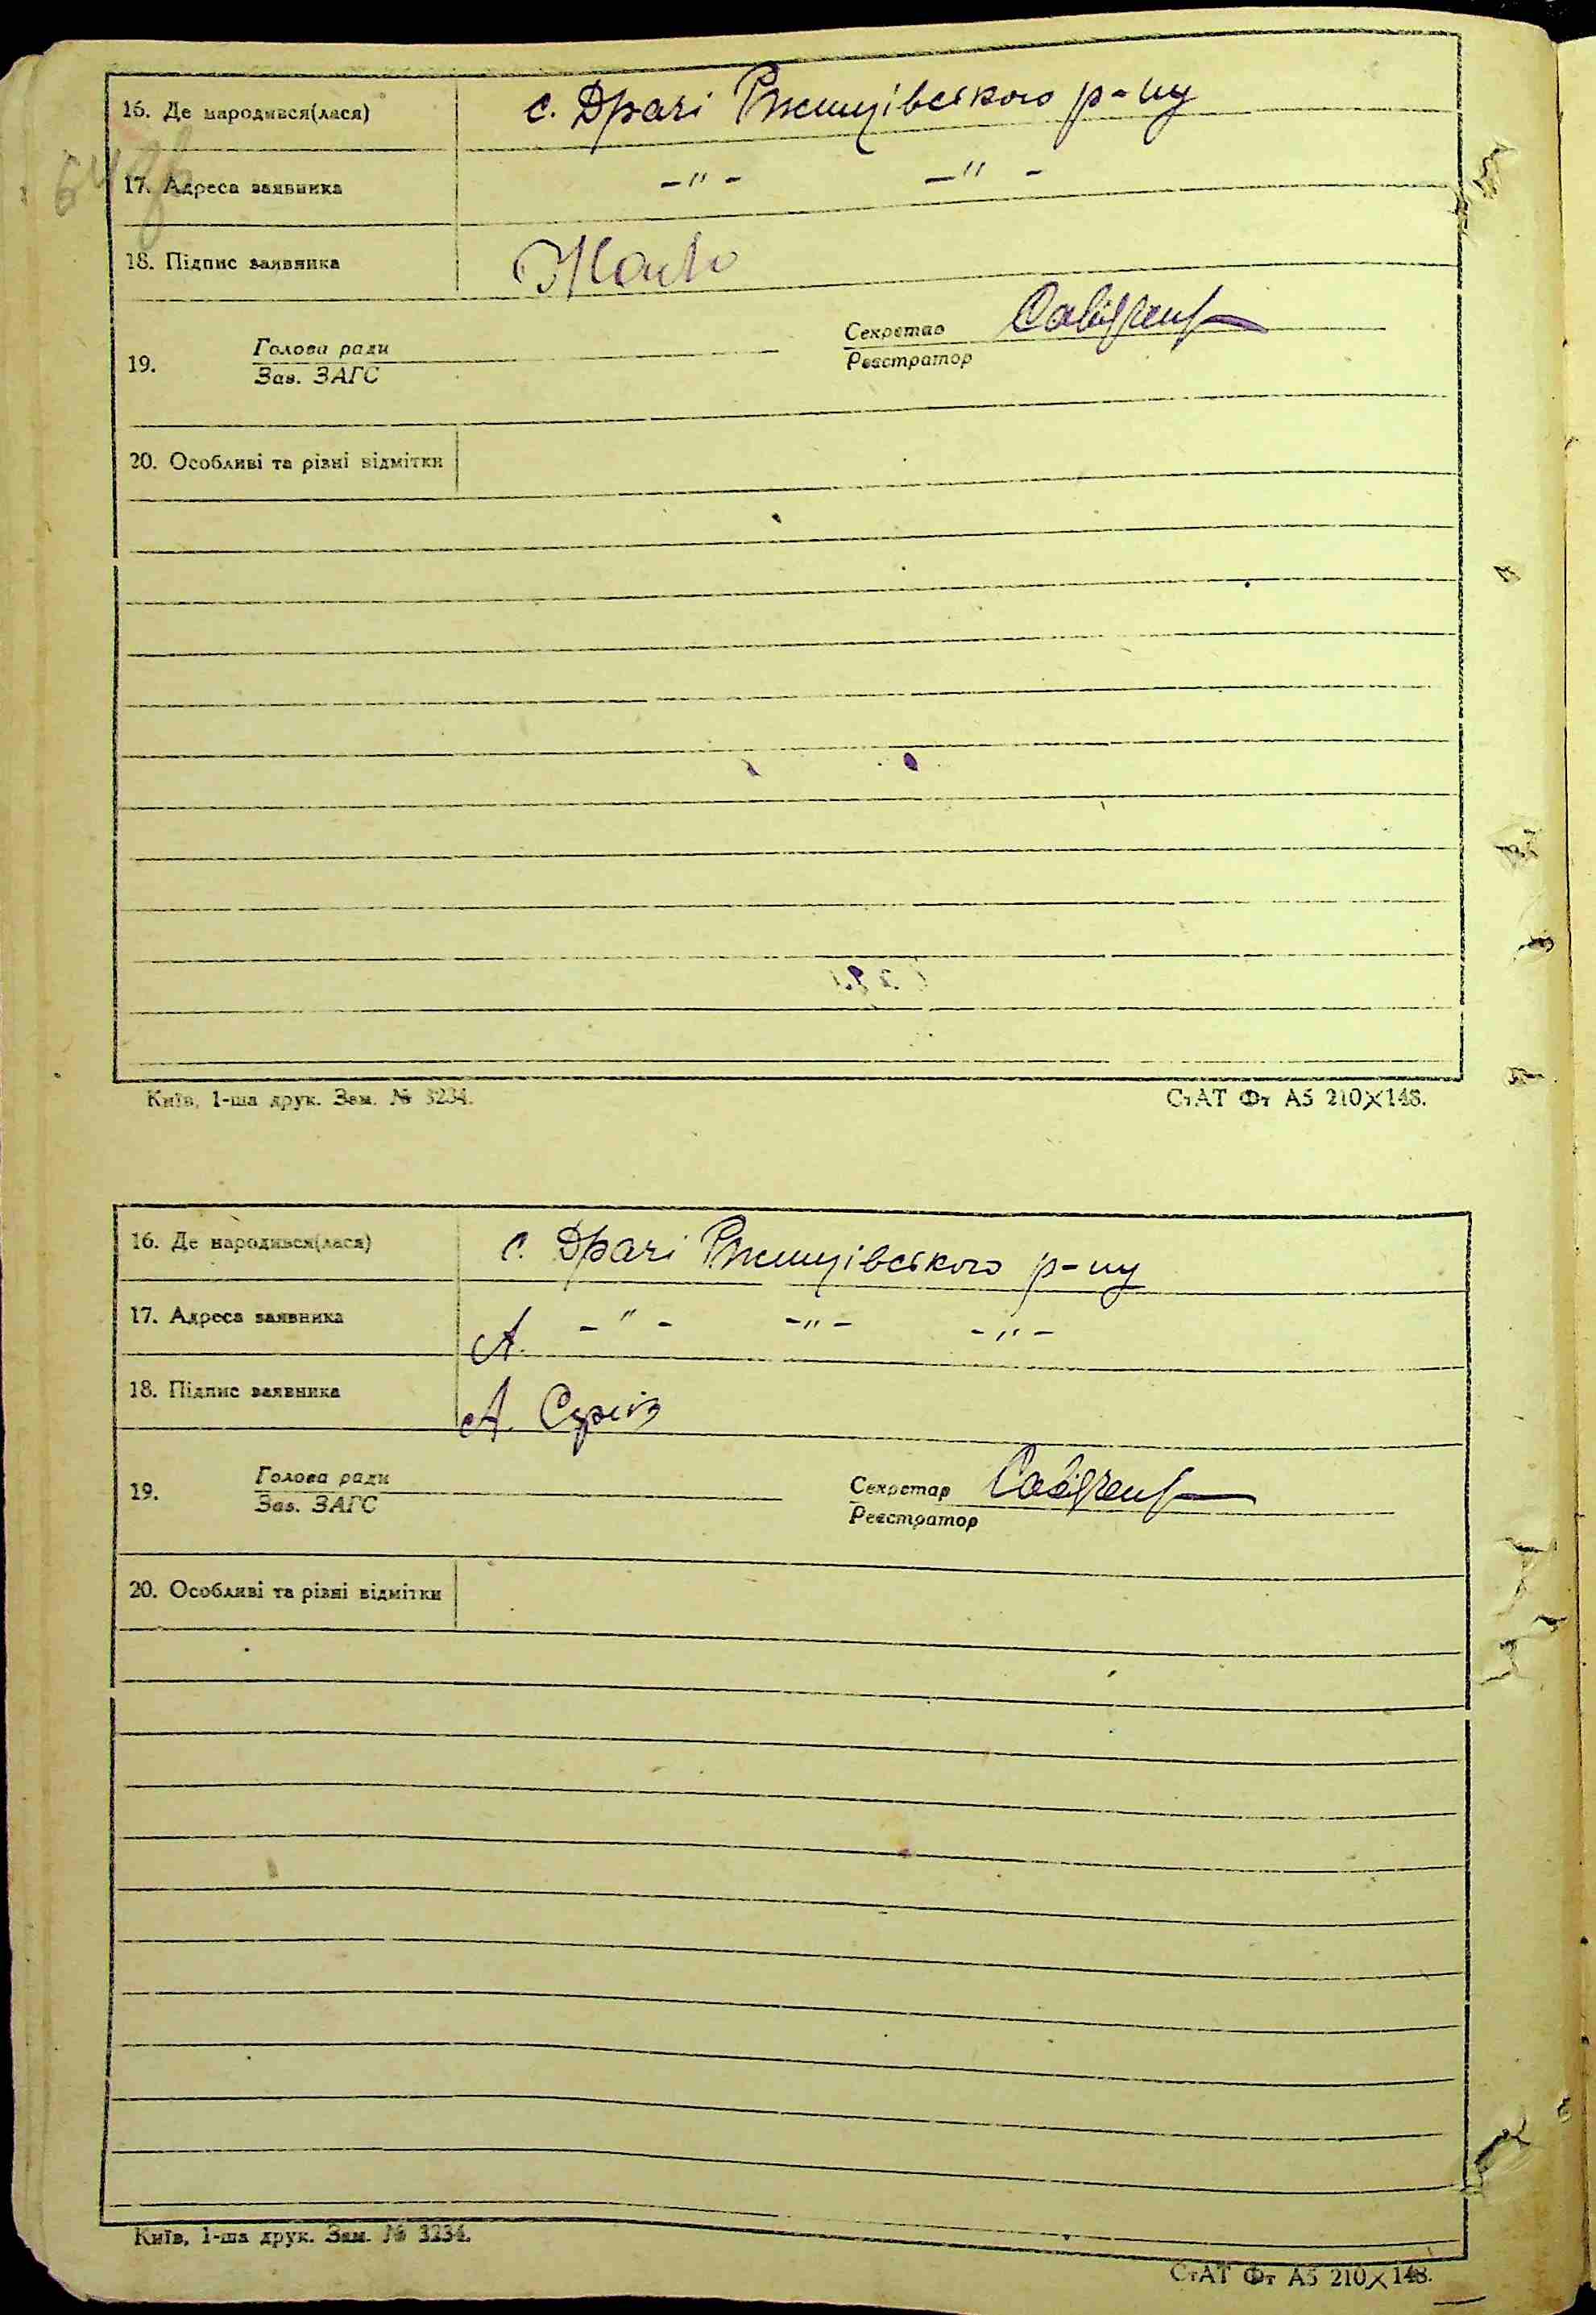 16. Де народився(лася) с. Драчі Ржищівського р-ну
64 зв
17. Адреса заявника -"- -"-
18. Підпис заявника
Секретар
Голова ради
19.
Зав. ЗАГС
Реєстратор
20. Особливі та різні відмітки
Київ, 1-ша друк. Зам. № 3234. СтАТ Фт А5 210×148.
16. Де народився(лася) с. Драчі Ржищівського р-ну
17. Адреса заявника А. -"- -"- -"-
18. Підпис заявника А.
Голова ради Секретар
19.
Зав. ЗАГС Реєстратор
20. Особливі та різні відмітки
Київ, 1-ша друк. Зам. № 3234.
СтАТ Фт А5 210×148.